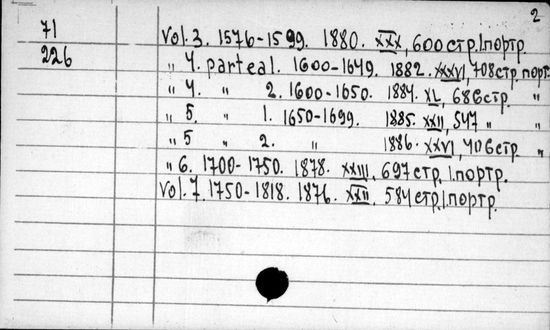 2
71 Vol. 3. 1576-1599. 1880. XXX, 600 стр. 1 портр.
226 „ 4. partea 1. 1600-1649. 1882. XXXVI, 708 стр. порт.
„ 4. „ 2. 1600-1650. 1884. XL, 686 стр. „
„ 5. „ 1. 1650-1699. 1885. XXII, 547 „ „
„ 5 „ 2. „ 1886. XXVI, 406 стр. „
„ 6. 1700-1750. 1878. XXIII, 697 стр, 1. портр.
Vol. 7. 1750-1818. 1876. XXII, 584 стр, 1 портр.